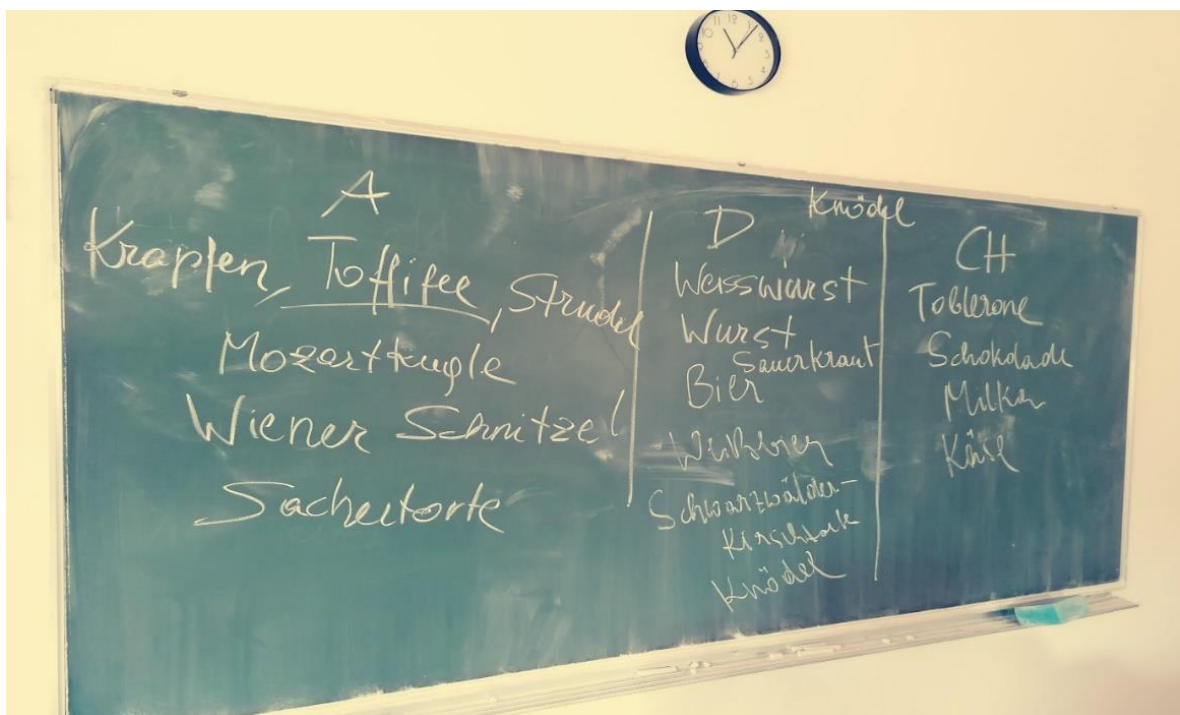 A
Krapfen, Toffifee, Strudel
Mozartkugle
Wiener Schnitzel
Sachertorte
Knödel
D
Weisswurst
Wurst
Sauerkraut
Bier
Weißbier
Schwarzwälder-
Kirschtorte
Knödel
CH
Toblerone
Schokolade
Milka
Käse